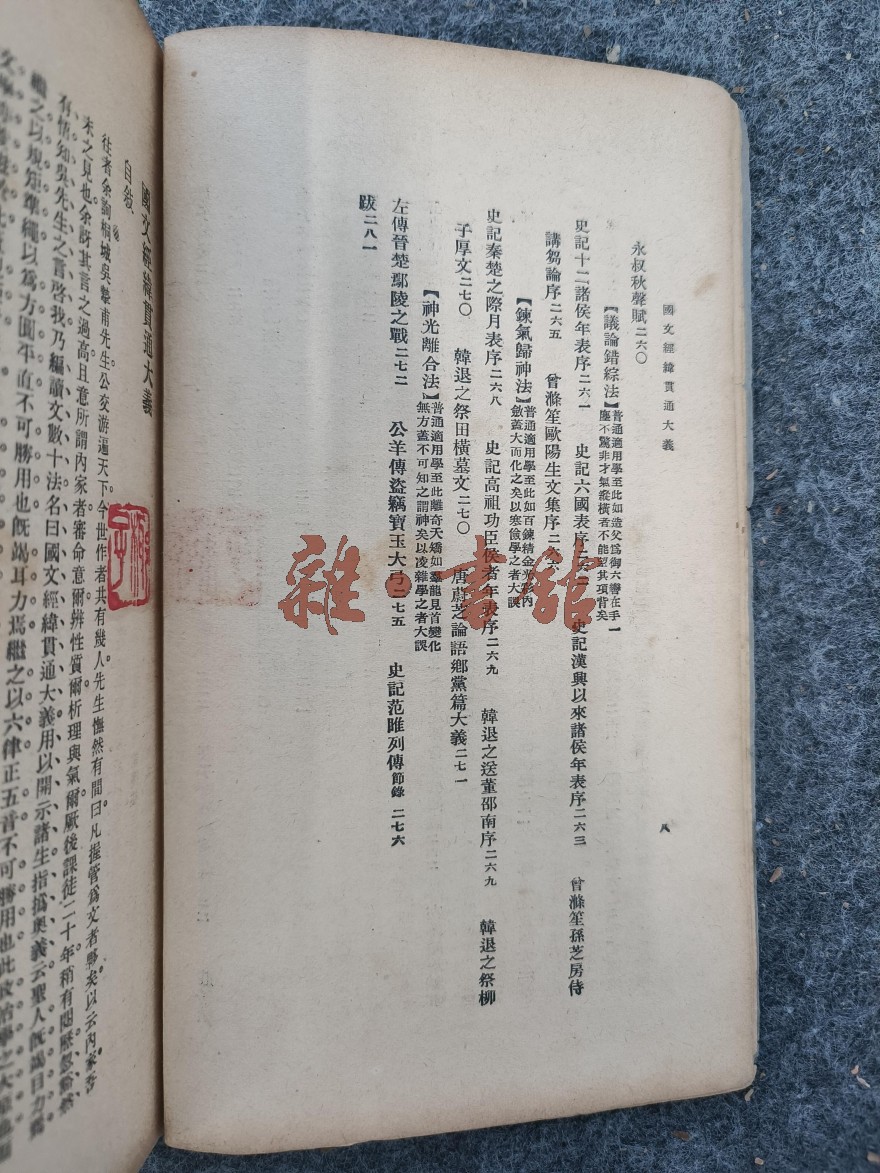 國文經緯貫通大義
八
永叔秋聲賦二六〇
【議論錯綜法】普通適用學至此如造父爲御六轡在手一
塵不驚非才氣縱橫者不能望其項背矣
史記十二諸侯年表序二六一 史記六國表序二六二 史記漢興以來諸侯年表序二六三 曾滌笙孫芝房侍
講芻論序二六五 曾滌笙歐陽生文集序二六六
【鍊氣歸神法】普通適用學至此如百鍊精金光彩內
斂蓋大而化之矣以寒儉學之者大誤
史記秦楚之際月表序二六八 史記高祖功臣侯者年表序二六九 韓退之送董邵南序二六九 韓退之祭柳
子厚文二七〇 韓退之祭田橫墓文二七〇 唐蔚芝論語鄉黨篇大義二七一
【神光離合法】普通適用學至此離奇夭矯如羣龍見首變化
無方蓋不可知之謂神矣以凌雜學之者大誤
左傳晉楚鄢陵之戰二七二 公羊傳盜竊寶玉大弓二七五 史記范睢列傳節錄 二七六
跋二八一
國文經緯貫通大義
自敍
往者余詢桐城吳摯甫先生公交游遍天下今世作者共有幾人先生憮然有間曰凡握管爲文者夥矣以云內家吾
未之見也余訝其言之過高且意所謂內家者審命意爾辨性質爾析理與氣爾厥後課徒二十年稍有閱歷忽豁然
有悟知吳先生之言啓我乃編讀文數十法名曰國文經緯貫通大義用以開示諸生指撝奧義云聖人旣竭目力焉
繼之以規矩準繩以爲方圓平直不可勝用也旣竭耳力焉繼之以六律正五音不可勝用也此政治學之大
雜·書館